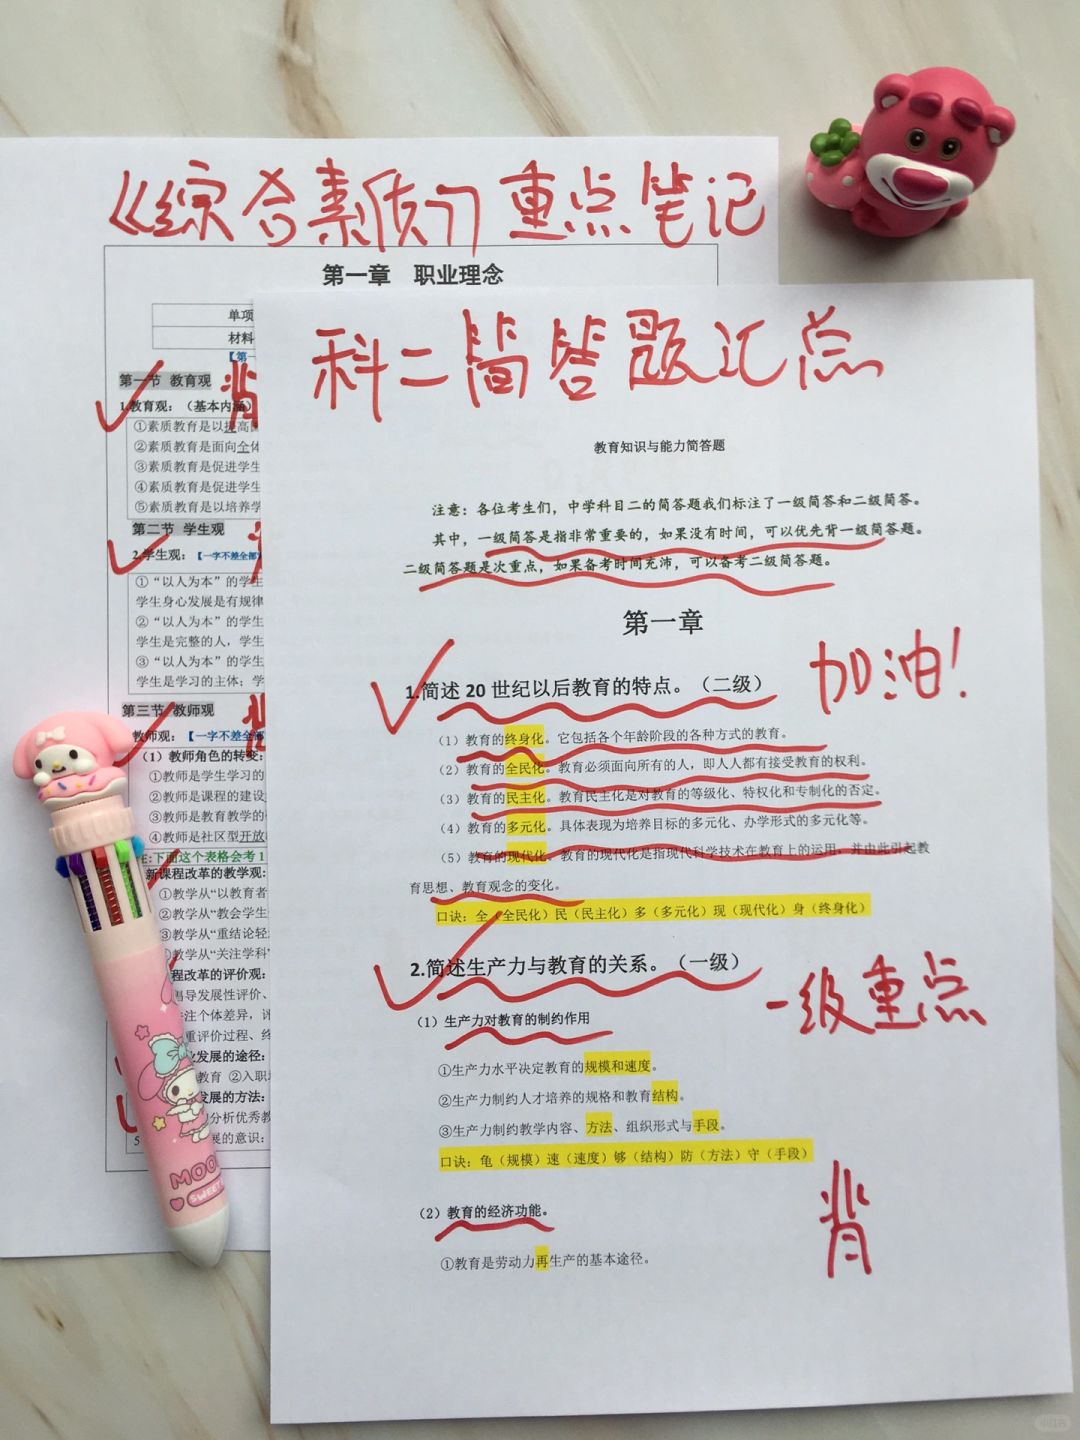 《综合素质》重点笔记
第一章 职业理念
单项
材料
【第一
第一节 教育观
背
1.教育观：（基本内涵）
①素质教育是以提高国
②素质教育是面向全体
③素质教育是促进学生
④素质教育是促进学生
⑤素质教育是以培养学
第二节 学生观
2.学生观：【一字不差全部
①“以人为本”的学生
学生身心发展是有规律
②“以人为本”的学生
学生是完整的人，学生
③“以人为本”的学生
学生是学习的主体；学
第三节 教师观
教师观：【一字不差全部
（1）教师角色的转变：
①教师是学生学习的
②教师是课程的建设
③教师是教育教学的
④教师是社区型开放
注:下面这个表格会考 1
新课程改革的教学观：
①教学从“以教育者
②教学从“教会学生
③教学从“重结论轻
④教学从“关注学科”
程改革的评价观：
倡导发展性评价、
注个体差异，评
重评价过程、终
业发展的途径：
教育 ②入职
发展的方法：
分析优秀教
展的意识：
科二简答题汇点
教育知识与能力简答题
注意：各位考生们，中学科目二的简答题我们标注了一级简答和二级简答。
其中，一级简答是指非常重要的，如果没有时间，可以优先背一级简答题。
二级简答题是次重点，如果备考时间充沛，可以备考二级简答题。
第一章
加油！
1.简述 20 世纪以后教育的特点。（二级）
（1）教育的终身化。它包括各个年龄阶段的各种方式的教育。
（2）教育的全民化。教育必须面向所有的人，即人人都有接受教育的权利。
（3）教育的民主化。教育民主化是对教育的等级化、特权化和专制化的否定。
（4）教育的多元化。具体表现为培养目标的多元化、办学形式的多元化等。
（5）教育的现代化。教育的现代化是指现代科学技术在教育上的运用，并由此引起教
育思想、教育观念的变化。
口诀：全（全民化）民（民主化）多（多元化）现（现代化）身（终身化）
2.简述生产力与教育的关系。（一级）
一级重点
（1）生产力对教育的制约作用
①生产力水平决定教育的规模和速度。
②生产力制约人才培养的规格和教育结构。
③生产力制约教学内容、方法、组织形式与手段。
口诀：龟（规模）速（速度）够（结构）防（方法）守（手段）
背
（2）教育的经济功能。
①教育是劳动力再生产的基本途径。
MOO
SWEET
小红书